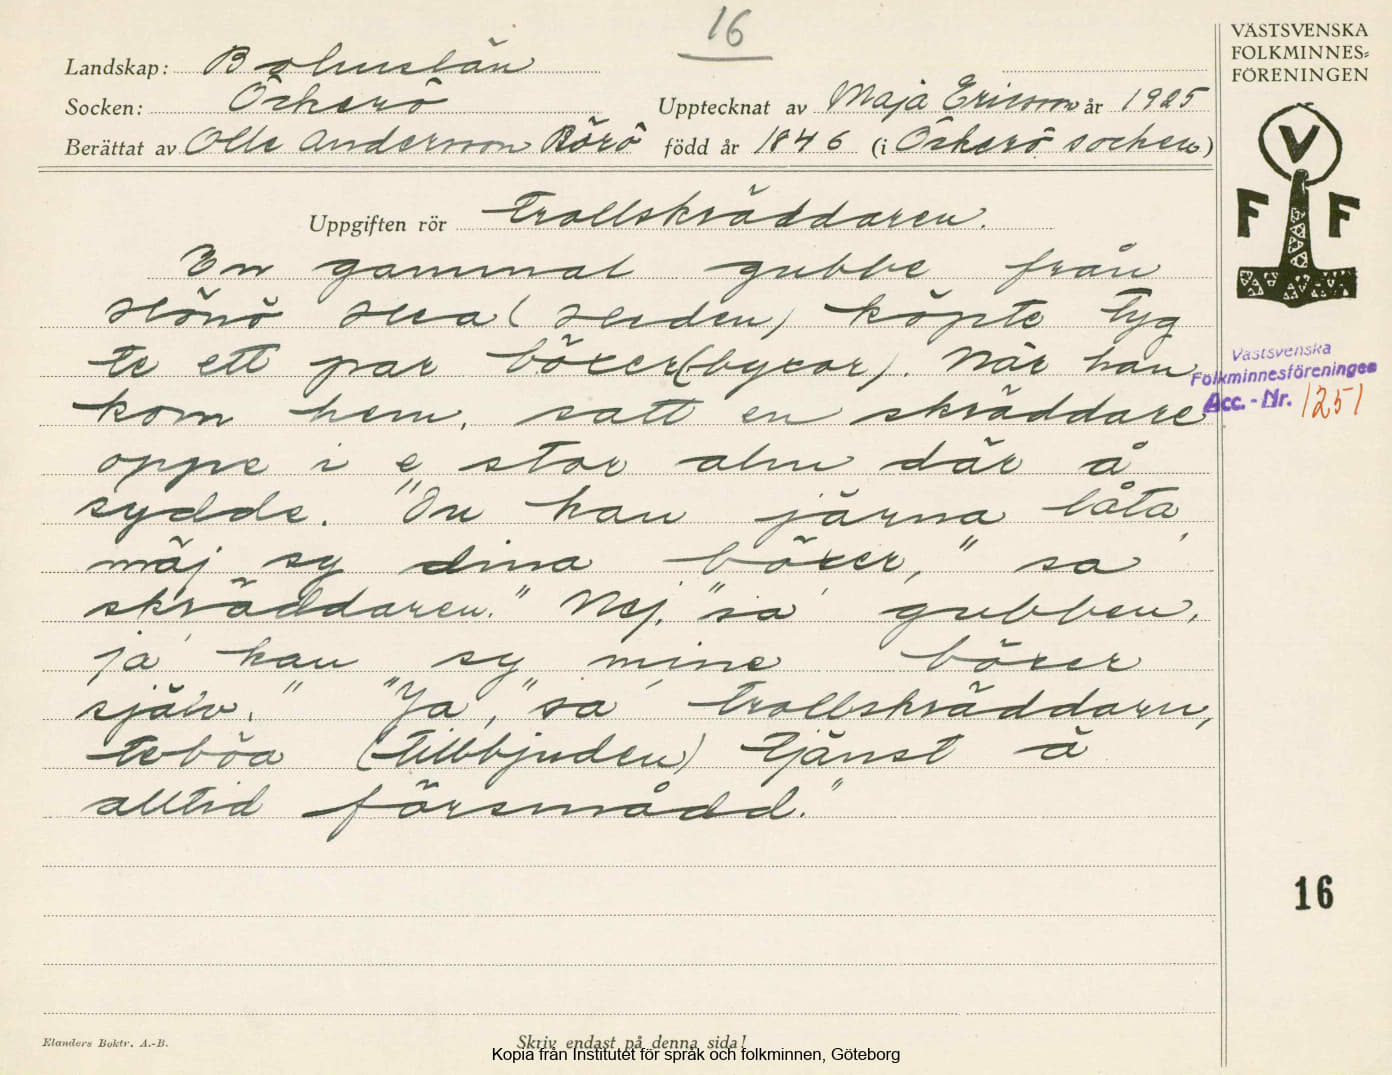 16
VÄSTSVENSKA
FOLKMINNES-
FÖRENINGEN
Landskap: Bohuslän
Socken: Öckerö Upptecknat av Maja Ericson år 1925
Berättat av Olle Andersson Rörö född år 1846 (i Öckerö socken)
V
F F
Uppgiften rör Trollskräddaren.
En gammal gubbe från
Hönö Hea (Heden) köpte tyg
te ett par böxer (byxor). När han
kom hem, satt en skräddare
oppe i e stor alm där å
sydde. "Du kan järna låta
mäj sy dina böxer," sa'
skräddaren." Nej, "sa' gubben,
ja' kan sy mine böxer
själv." "Ja," sa' trollskräddarn,
teböa (tillbjuden) tjänst ä
alltid försmådd."
Västsvenska
Folkminnesföreningen
Acc. - Nr. 1251
16
Elanders Boktr. A.-B.
Skriv endast på denna sida!
Kopia från Institutet för språk och folkminnen, Göteborg